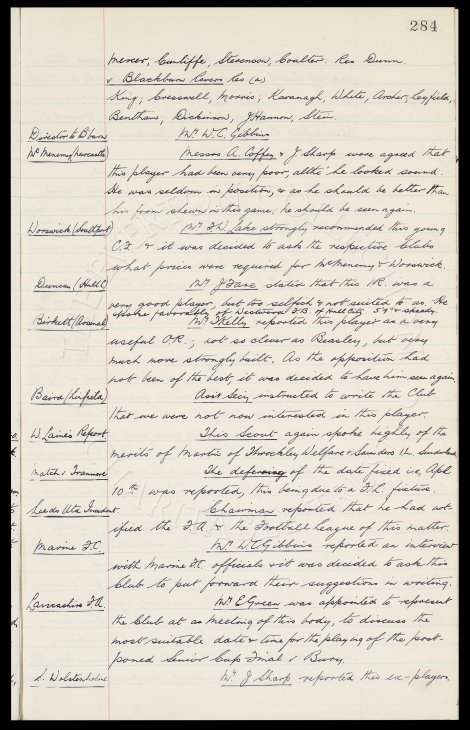 284
Mercer, Cunliffe, Stevenson, Coulter. Res Dunn.
v Blackburn Rovers Res (a)
King, Cresswell, Morris, Kavanagh, White, Archer, Leyfield,
Bentham, Dickinson, J Hannon, Stein.
Director to B'burn Mr W.C. Gibbins
McMenemy (Newcastle) Messrs A. Coffey & J Sharp were agreed that
this player had been very poor, altho' he looked sound.
He was seldom in position, & as he should be better than
his form shewn in this game, he should be seen again.
Worswick (Southport) Mr T.W. Lake strongly recommended this young
C.F. & it was decided to ask the respective Clubs
what prices were required for McMenemy & Worswick.
Duncan (Hull C) Mr J Fare stated that this I.R. was a
very good player, but too selfish & not suited to us. He
spoke favorably of Westwood F.B. of Hull City. 5'9" & speedy.
Birkett (Arsenal) Mr T Kelly reported this player as a very
useful O.R.; not so clever as Beasley, but very
much more strongly built. As the opposition had
not been of the best, it was decided to have him seen again.
Baird (Linfield) Asst Secy instructed to write the Club
that we were not now interested in this player.
W. Laine's Report This Scout again spoke highly of the
merits of Martin of Throckley Welfare & Saunders I.L. Sunderland
Match v Tranmere The defering of the date fixed viz, Apl
10th was reported, this being due to a F.L. fixture.
Leeds Utd Incident Chairman reported that he had not-
ified the F.A. & the Football League of this matter.
Marine F.C. Mr W.C. Gibbins reported an interview
with Marine F.C. officials & it was decided to ask this
Club to put forward their suggestions in writing.
Lancashire F.A. Mr E Green was appointed to represent
the Club at as meeting of this body, to discuss the
most suitable date & time for the playing of the post-
poned Senior Cup Final v Bury.
S. Wolstenholme Mr J Sharp reported this ex-players